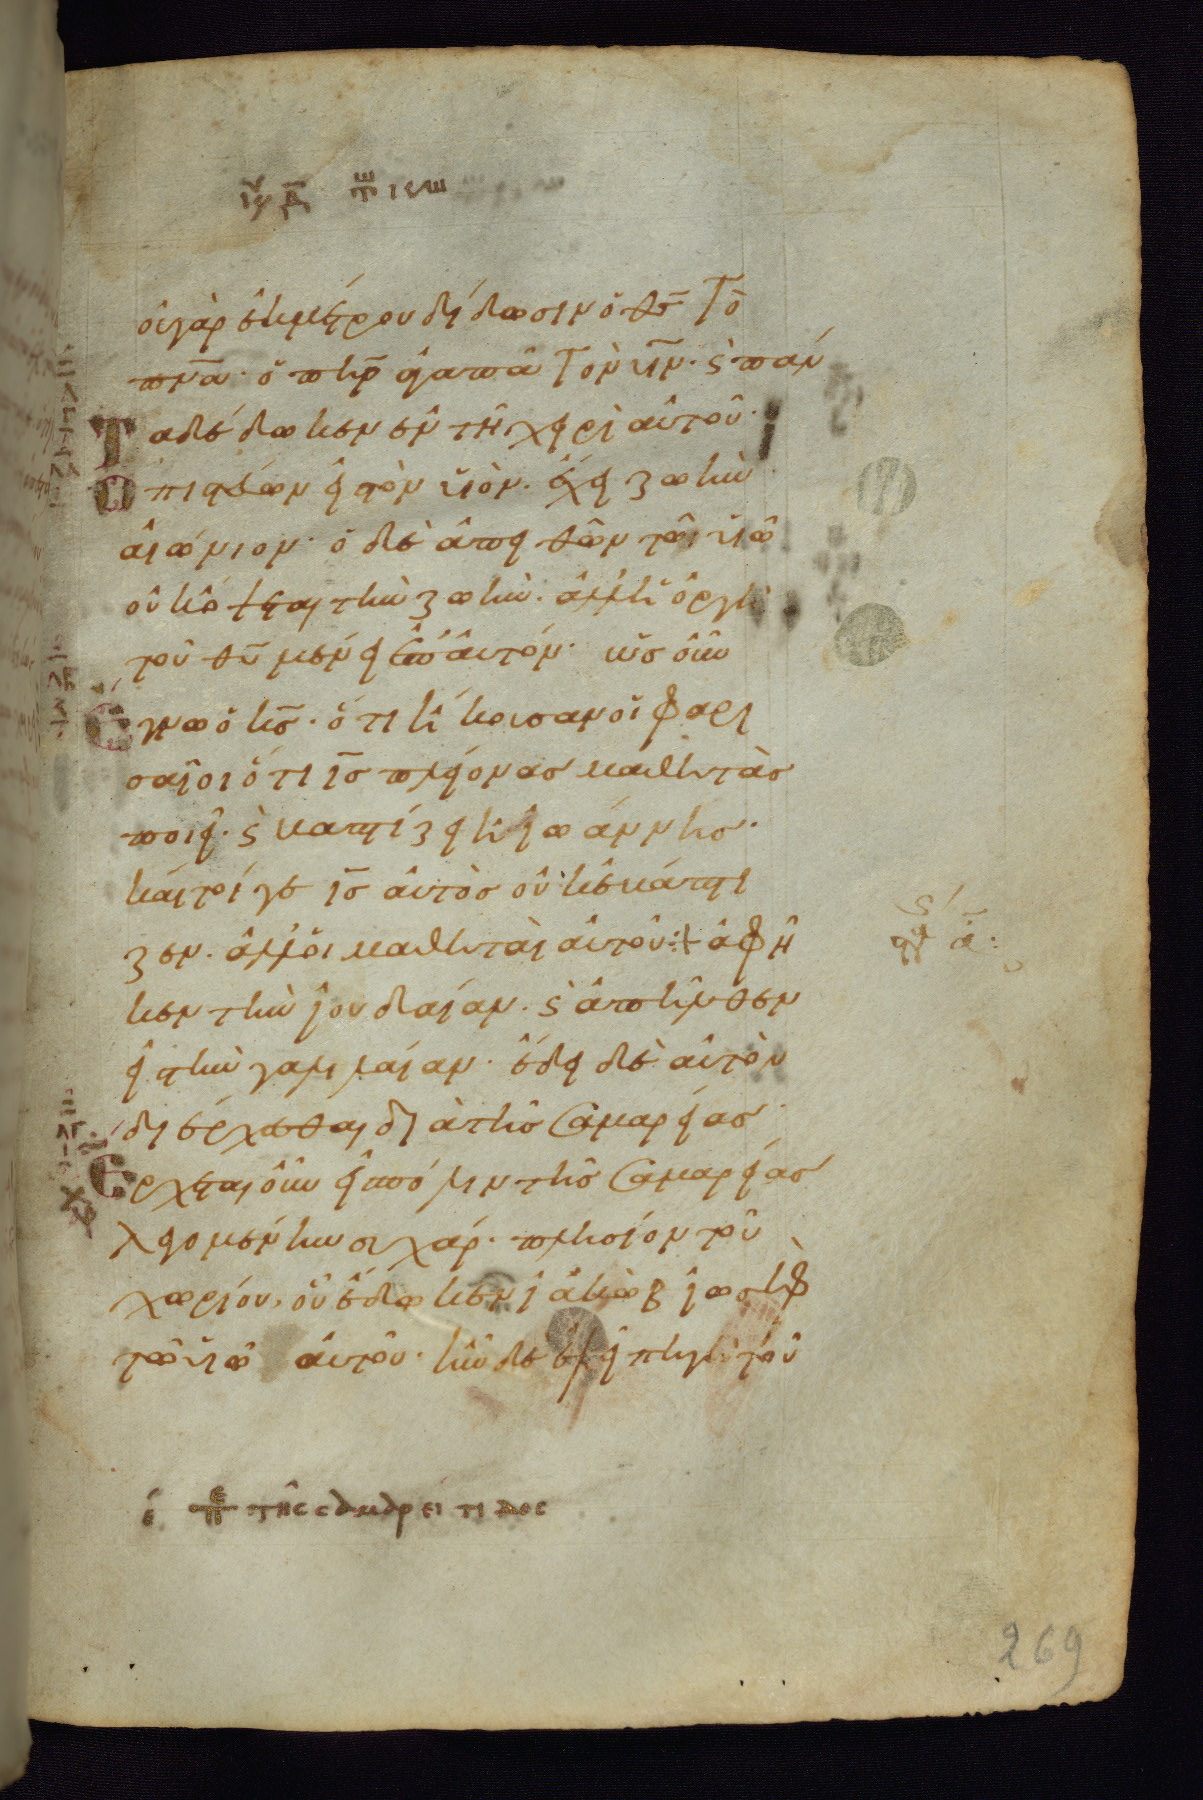 οὐ γὰρ ἐκ μέτρου δίδωσιν ὁ θ̅ς̅ τὸ
π̅ν̅α̅· ὁ π̅η̅ρ̅ ἀγαπᾶ τὸν υ̅ν̅· ϛ πάν
τα δέδωκεν ἐν τῆ χειρὶ αὐτοῦ·
ὁ πιστεύων εἰς τὸν υἱὸν· ἔχει ζωὴν
αἰώνιον· ὁ δὲ ἀπειθῶν τῶι υἱῶ
οὐκ ὄψεται τὴν ζωήν· ἀλλ' ἡ ὀργὴ
τοῦ θ̅υ̅ μένει ἐπ' αὐτόν· ὡς οὖν
ἔγνω ὁ κ̅ς̅· ὅτι ἤκουσαν οἱ φαρι
σαῖοι ὅτι ι̅ς̅ πλείονας μαθητὰς
ποιεῖ· ϛ βαπτίζει ἢ ἰωάννης·
καίτοι γε ι̅ς̅ αὐτὸς οὐκ ἐβάπτι
ζεν· ἀλλ' οἱ μαθηταὶ αὐτοῦ· ἀφῆ
κεν τὴν ἰουδαίαν· ϛ ἀπῆλθεν
εἰς τὴν γαλιλαίαν· ἔδει δὲ αὐτὸν
διέρχεσθαι διὰ τῆς σαμαρείας·
ἔρχεται οὖν εἰς πόλιν τῆς σαμαρείας
λεγομένην συχάρ· πλησίον τοῦ
χωρίου, οὗ ἔδωκεν ἰακὼβ ἰωσὴφ
τῶ υἱῶ αὐτοῦ· ἦν δὲ ἐκεῖ πηγὴ τοῦ
ε πε τῆς σαμαρείτιδος
269